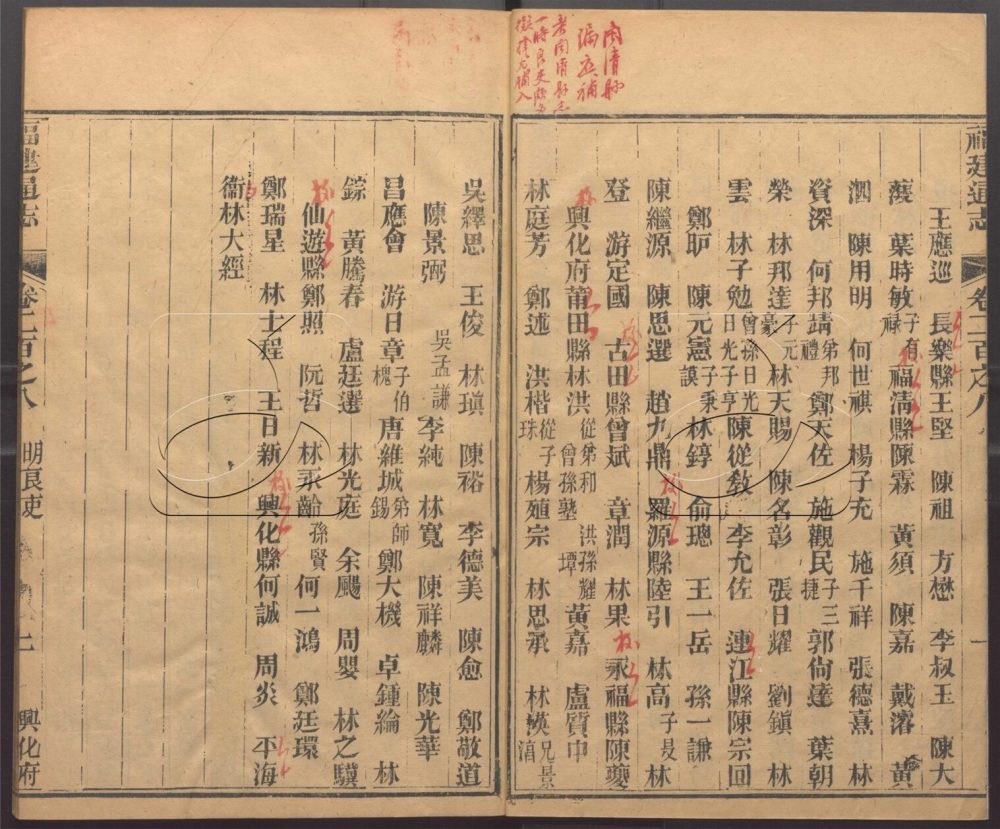 閩清縣
漏應補
福建通志
卷二百之八
王應巡 長樂縣王堅 陳祖 方懋 李叔王 陳大
濩 葉時敏子有祿 福清縣陳霖 黃須 陳嘉 戴濬 黃
泗 陳用明 何世祺 楊子充 施千祥 張德熹 林
資深 何邦靖弟邦禮 鄭天佐 施觀民子三捷 郭尙達 葉朝
榮 林邦達子元豪 林天賜 陳名彰 張日耀 劉鎭 林
雲 林子勉曾孫日光日光子亨 陳從敎 李允佐 連江縣陳宗回
鄭昈 陳元憲子秉謨 林錞 俞璁 王一岳 孫一謙
陳繼源 陳思選 趙九鼎 羅源縣陸引 林高子晸 林
登 游定國 古田縣曾斌 章潤 林果 永福縣陳夔
興化府莆田縣林洪從弟和 曾孫塾 洪孫耀 墰 黃嘉 盧質中
林庭芳 鄭述 洪楷從子珠 楊殖宗 林思承 林煐兄景淯
吳繹思 王俊 林瑱 陳裕 李德美 陳愈 鄭敬道
陳景弼 吳孟謙 李純 林寬 陳祥麟 陳光華
昌應會 游日章子伯槐 唐維城弟師錫 鄭大機 卓鍾綸 林
錝 黃騰春 盧廷選 林光庭 余颺 周嬰 林之驥
仙遊縣鄭照 阮哲 林永齡孫賢 何一鴻 鄭廷環
鄭瑞星 林士程 王日新 興化縣何誠 周炎 平海
衞林大經
福建通志
卷二百之八 明良吏 興化府